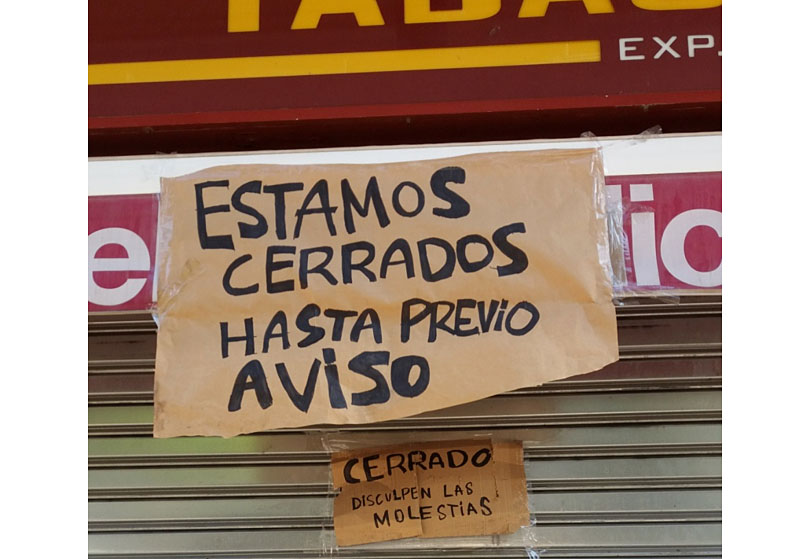 EXP.
ESTAMOS
CERRADOS
HASTA PREVIO
AVISO
CERRADO
DISCULPEN LAS
MOLESTIAS